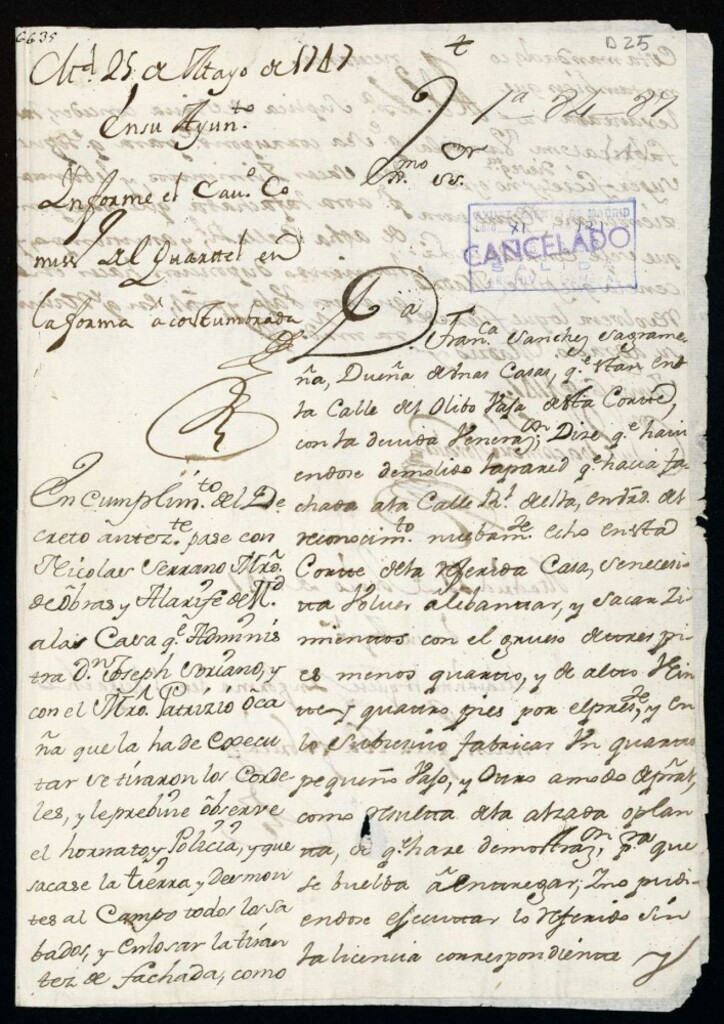 6635
D 25
Md 25 de Mayo de 1747
En su Ayunto
1a 84 87
Informe el Cavo Co
miss del Quartel en
la forma acostumbrada
CANCELADO
Illmo Sr
Da Franca Sanchez Sagrame-
ña, Dueña de Unas Casas, qe estan en
la Calle del Olibo Vaja de esta Corte,
con la devida Venerazn, Dize qe havi
endose demolido la pared qe hacia fa
chada a la Calle Rl de ella, en vrd del
reconocimto nuebamte echo en esta
Corte de la referida Casa, se necesi
ta Volver alebantar, y sacar Zi
mientos con el grueso de tres pi
es menos quarto, y de alto Vein
te y quatro pies por el preste, y en
lo Subcesivo fabricar Un quarto
pequeño Vajo, y Otro a modo de pral,
como resulta de la alzada o plan
ta, de qe hace demostrazn, pra que
se buelba â entregar; I no pudi-
endose ejecutar lo referido sin
la licencia correspondiente
En cumplimto del De
creto anteze pase con
Nicolas Serrano Mro
de Obras y Alarife de Md
a las Casa qe Adminis
tra Dn Joseph Soriano, y
con el Mro Patrizio Oca
ña que la ha de Execu
tar se tiraron los Corde-
les, y le prebine observe
el hornato y Policia, y que
sacase la tierra y Desmon
tes al Campo todos los sa
bados, y enlosar la tiran
tez de fachada, como